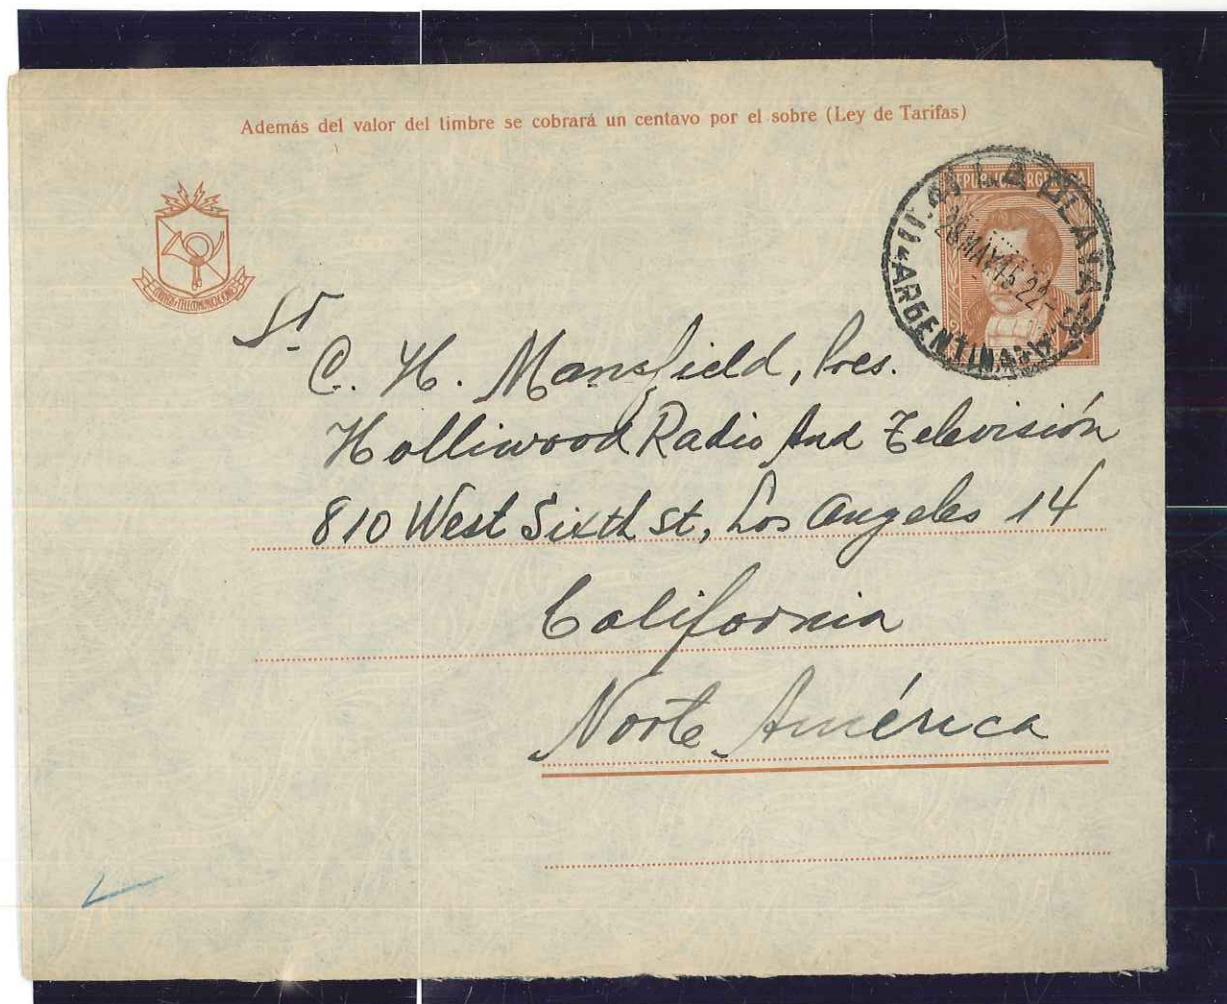 Además del valor del timbre se cobrará un centavo por el sobre (Ley de Tarifas)
REPUBLICA ARGENTINA
LA PLATA
28 MAY 45 22
ARGENTINA
CORREOS Y TELECOMUNICACIONES
Sr.
C. H. Mansfield, Pres.
Holliwood Radio And Televisión
810 West Sixth St, Los Angeles 14
California
Norte América